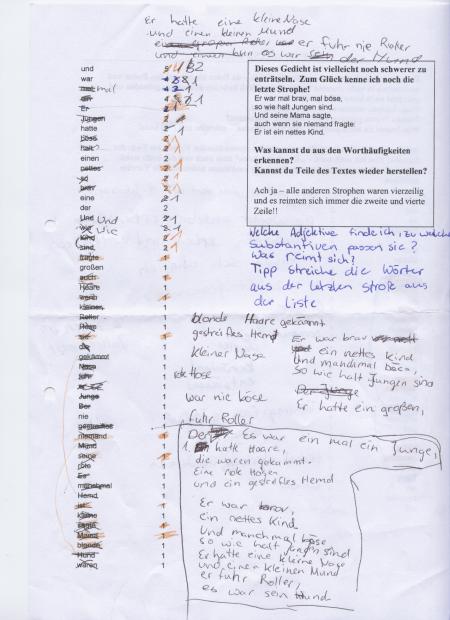 Er hatte eine kleine Nase
und einen kleinen Mund
er fuhr nie Roller
und einen
es war sein der Hund
und 5
war 4
mal
ein
Er
Jungen
hatte 2
böse 2
halt 2
einen 2
nettes 2
so 2
brav 2
eine 2
der 2
Und 2 Und
wie wie
Kind 2
sind, 2
fragte 1
großen 1
auch 1
Haare 1
wenn 1
kleinen, 1
Roller 1
Hose 1
sie 1
die 1
gekämmt 1
Nase 1
fuhr 1
Junge 1
Der 1
nie 1
gestreiftes 1
niemand 1
Mund 1
seine 1
rote 1
Er 1
manchmal 1
Hemd. 1
ist 1
kleine 1
sagte 1
Mama 1
blonde 1
Hund 1
waren 1
Dieses Gedicht ist vielleicht noch schwerer zu
enträtseln. Zum Glück kenne ich noch die
letzte Strophe!
Er war mal brav, mal böse,
so wie halt Jungen sind.
Und seine Mama sagte,
auch wenn sie niemand fragte:
Er ist ein nettes Kind.
Was kannst du aus den Worthäufigkeiten
erkennen?
Kannst du Teile des Textes wieder herstellen?
Ach ja – alle anderen Strophen waren vierzeilig
und es reimten sich immer die zweite und vierte
Zeile!!
Welche Adjektive finde ich, zu welchen
Substantiven passen sie?
Was reimt sich?
Tipp streiche die Wörter
aus der letzten strofe aus
der Liste
blonde Haare gekämmt
gestreiftes Hemd
kleiner Nase
rote Hose
war nie böse
fuhr Roller
Er war brav
ein nettes Kind
und manchmal böse,
so wie halt Jungen sind
Der Junge
Er hatte einen großen,
Der Es war ein mal ein Junge,
1. hatte Haare,
die waren gekämmt.
Eine rote Hosen
und ein gestreiftes Hemd
Er war brav,
ein nettes Kind
Und manchmal böse
so wie halt Jungen sind
Er hatte eine kleine Nase
und einen kleinen Mund
er fuhr Roller,
es war sein Hund